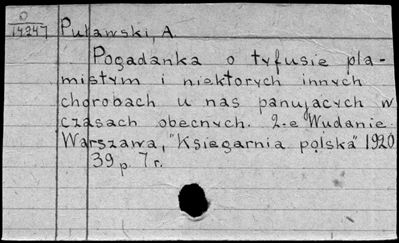 O
14247
Puławski, A.
Pogadanka o tyfusie pla-
mistym i niektorych innych
chorobach u nas panujacych w
czasach obecnych. 2-e Wudanie.
Warszawa, "Księgarnia polska" 1920
39 p. 7 r.